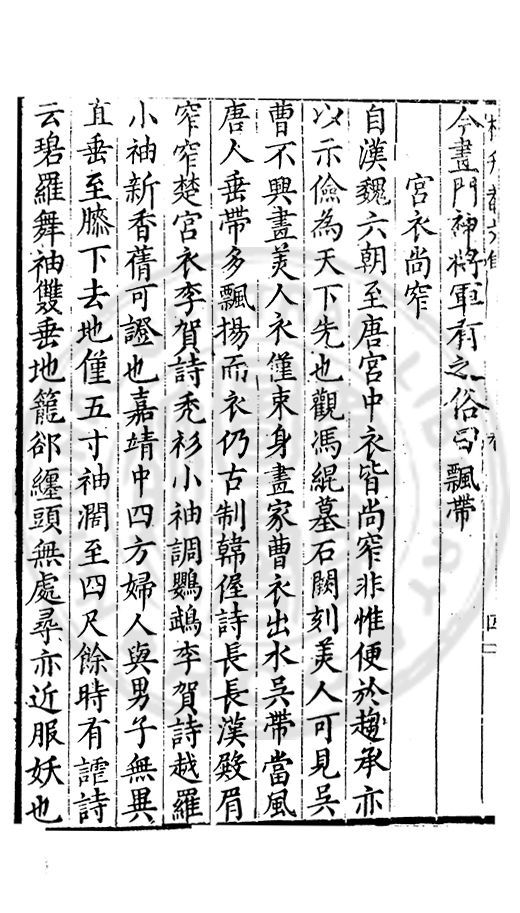 今畫門神將軍有之俗曰飄帶
宮衣尚窄
自漢魏六朝至唐宮中衣皆尚窄非惟便於趨承亦
以示儉為天下先也觀馮緄墓石闕刻美人可見吳
曹不興畫美人衣僅束身畫家曹衣出水吳帶當風
唐人垂帶多飄揚而衣仍古制韓偓詩長長漢殿眉
窄窄楚宮衣李賀詩禿衫小袖調鸚鵡李賀詩越羅
小袖新香蒨可證也嘉靖中四方婦人與男子無異
直垂至膝下去地僅五寸袖濶至四尺餘時有謔詩
云碧羅舞袖雙垂地籠郤纏頭無處尋亦近服妖也